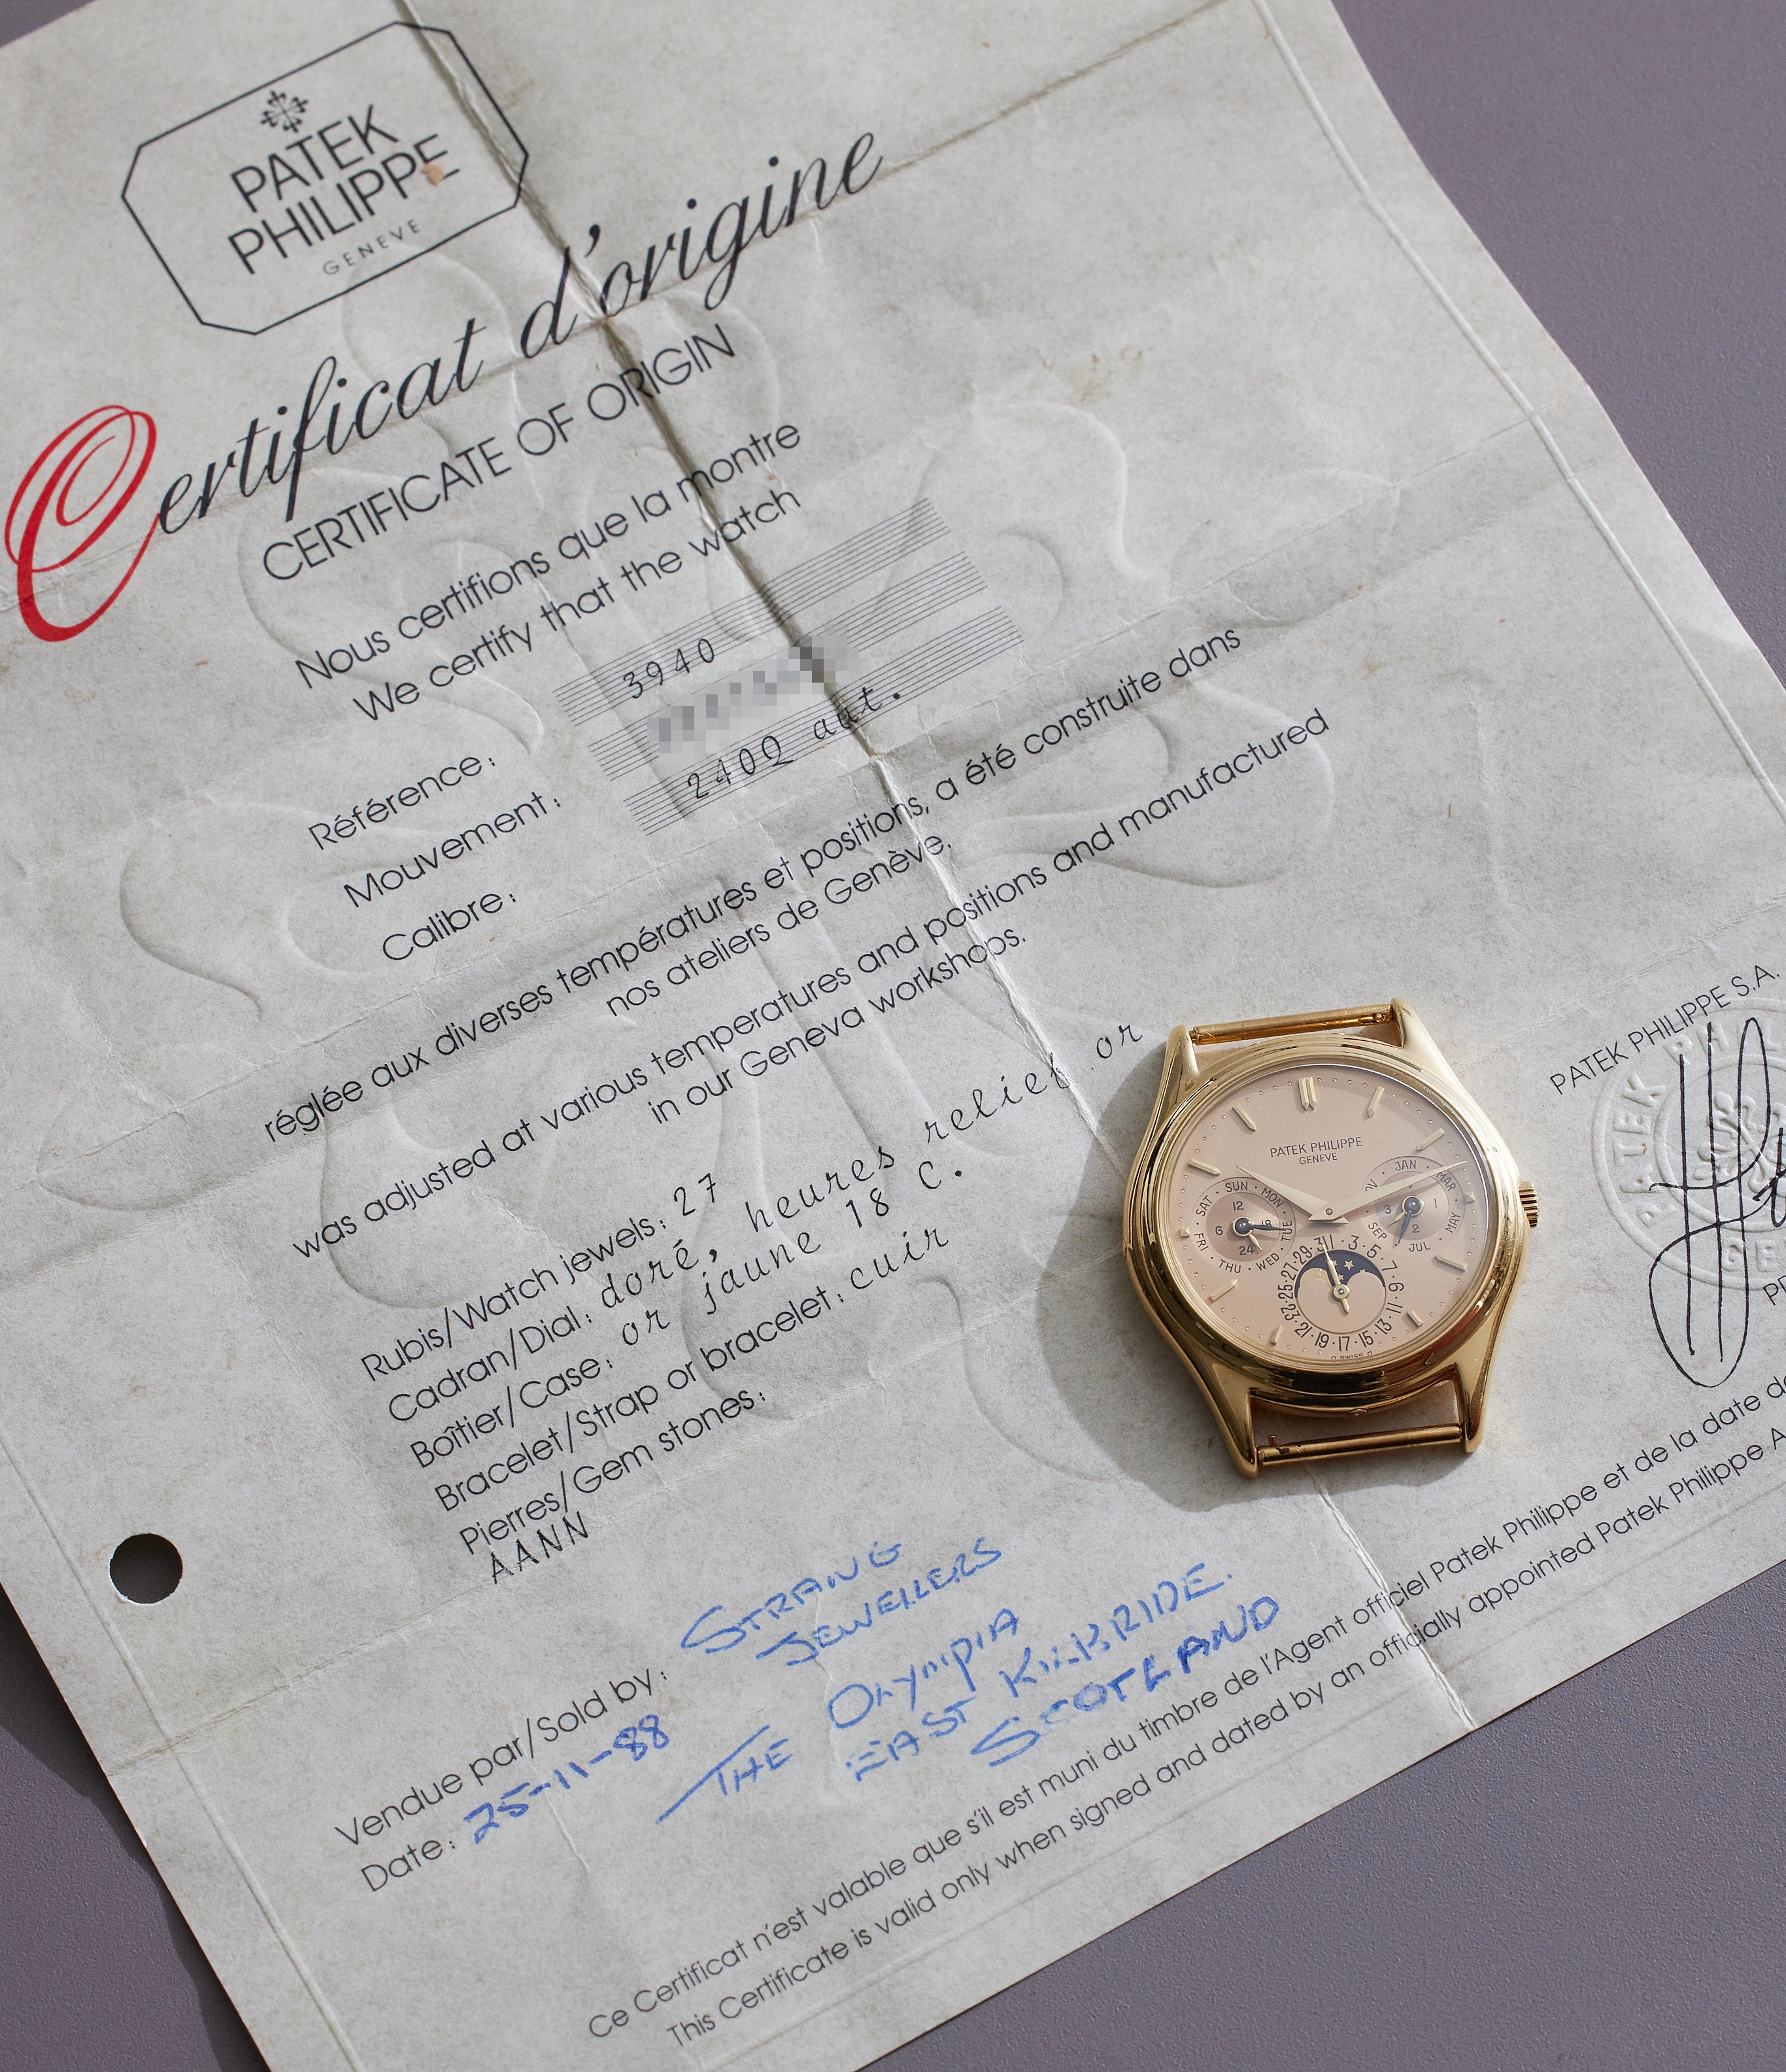 PATEK
PHILIPPE
GENEVE
Certificat d'origine
CERTIFICATE OF ORIGIN
Nous certifions que la montre
We certify that the watch
Référence: 3940
Mouvement:
Calibre: 240Q aut.
réglée aux diverses températures et positions, a été construite dans
nos ateliers de Genève.
was adjusted at various temperatures and positions and manufactured
in our Geneva workshops.
Rubis/Watch jewels: 27
Cadran/Dial: doré, heures relief or
Boîtier/Case: or jaune 18 C.
Bracelet/Strap or bracelet: cuir
Pierres/Gem stones:
AANN
PATEK PHILIPPE S.A.
PATEK
Vendue par/Sold by: STRANG
JEWELLERS
Date: 25-11-88
THE OLYMPIA
EAST KILBRIDE.
SCOTLAND
Ce Certificat n'est valable que s'il est muni du timbre de l'Agent officiel Patek Philippe et de la date
This Certificate is valid only when signed and dated by an officially appointed Patek Philippe
PATEK PHILIPPE
GENEVE
SAT · SUN · MON · TUE · WED · THU · FRI
12
6
18
24
JAN
MAR
MAY
JUL
SEP
1
2
3
31 · 3 · 5 · 7 · 9 · 11 · 13 · 15 · 17 · 19 · 21 · 23 · 25 · 27 · 29
SWISS